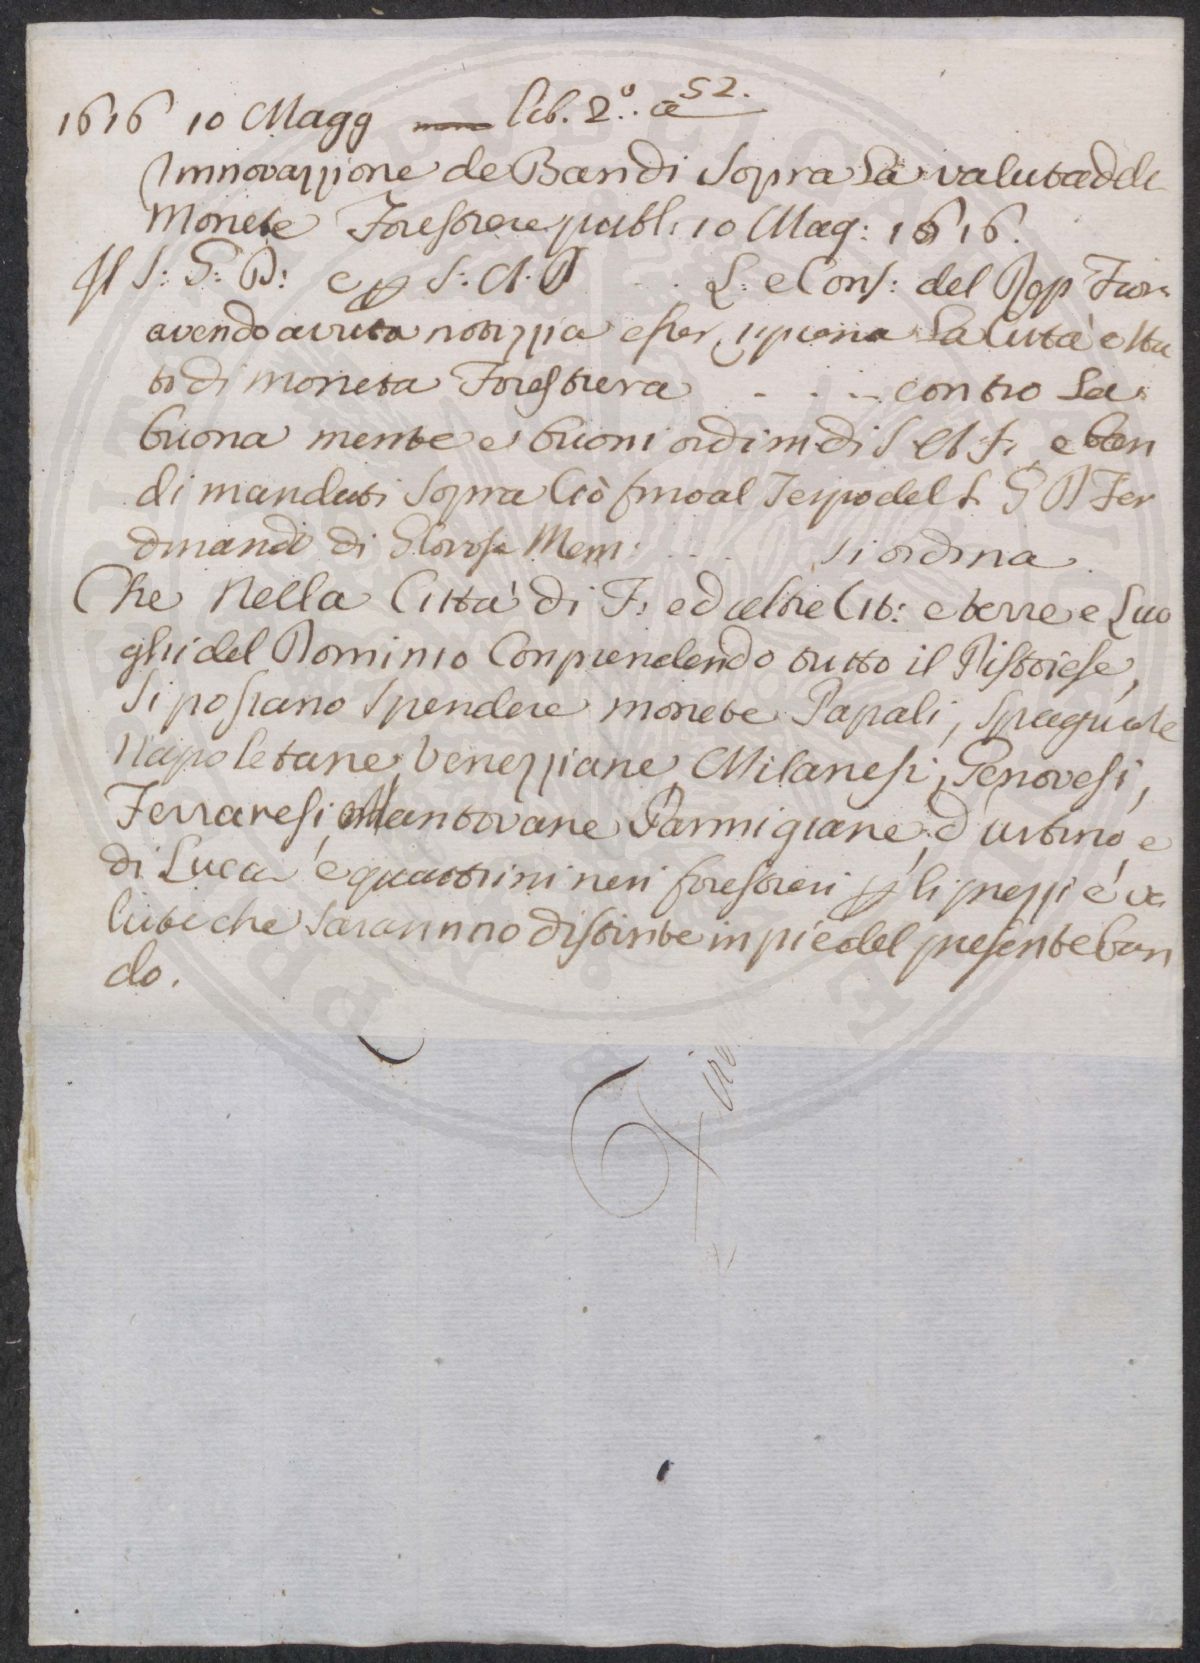 1616 10 Magg lib. 2.º a 52.
Innovazzione de Bandi sopra la valuta delle
Monete Forestiere publ: 10 Mag: 1616.
Il S: G: D: e p S: A. D L: e Cons: del Rep Fior:
avendo avuta notizzia esser ripiena la Città e Sta
to di moneta Forestiera . . . contro la
buona mente e buoni ordini di S A S, e ban
di mandati sopra Ciò fino al Tempo del S. G D Fer
dinando di Gloriosa Mem: . . . si ordina
Che Nella Città di F: ed altre Citt: e terre e Luo
ghi del Dominio Conprendendo tutto il Pistoiese,
si possano spendere monete Papali, Spagniole
Napoletane, Venezziane, Milanesi, Genovesi,
Ferraresi, Mantovane, Parmigiane, d'Urbino, e
di Luca, e quattrini neri forestieri p li prezzi e va
lute che saranno distinte in pie del presente ban
do.